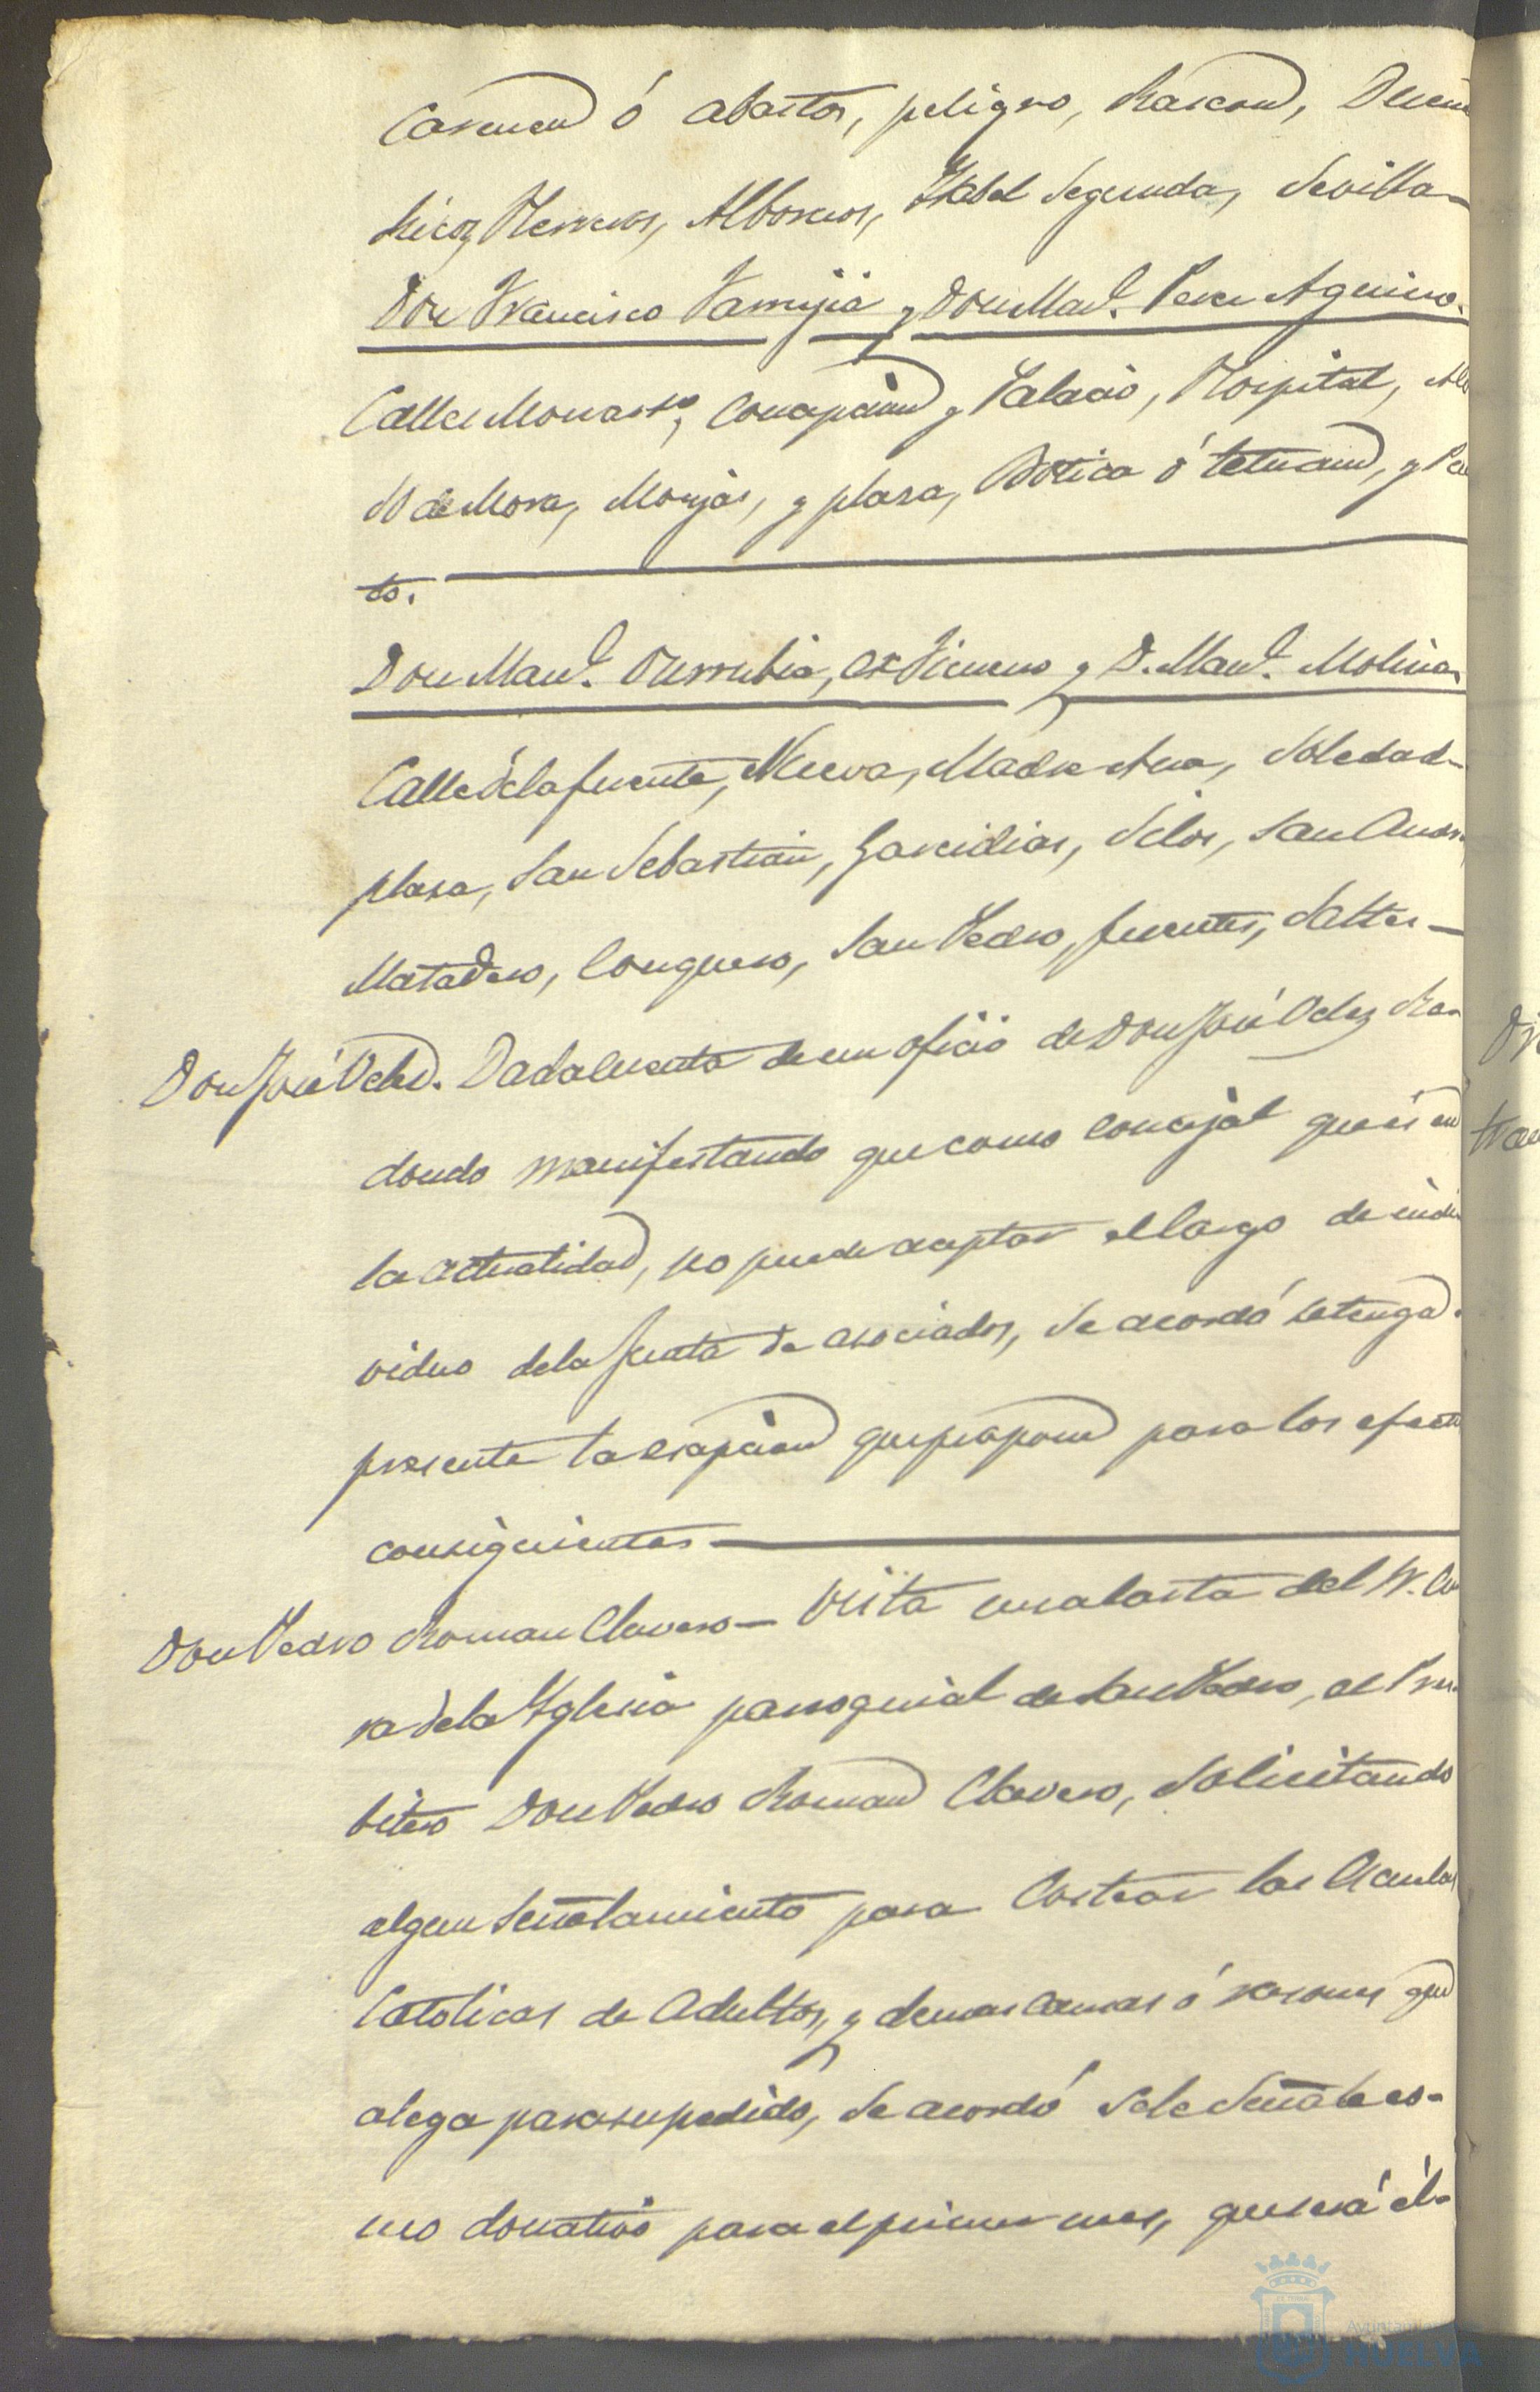 Carmen ó abastos, peligro, Rascon,
Ricoz Herreros, Albornoz, Ysabel Segunda, Sevilla-
Don Francisco Jamujia y Don Man.l Perez Aguirre.
Calles Monasto, Concepcion y Palacio, Hospital,
de Mora, Monjas, y plaza, Botica ó tetuan, y Pue
to.
Don Man.l Ourrubia, y D. Man.l Molina
Calle de la fuente, Nueva, Madre Ana, Soledad-
plaza, San Sebastian, Garcidias, Silos, San Andres,
Matadero, Conquero, San Pedro, fuentes, Saltes-
Don José Velez. Dada cuenta de un oficio de Don José Velez Re-
dondo manifestando que como concejal que és en
la actualidad, no puede aceptar el Cargo de indi
viduo de la Junta de asociados, Se acordó se tenga
presente la excepcion que propone para los efecto
consiguientes-
Don Pedro Roman Clavero- Vista una carta del Sr. Cu
ra de la Yglesia parroquial de San Pedro, el Pres-
bitero Don Pedro Roman Clavero, Solicitando
algun Señalamiento para Costear las Escuelas
Catolicas de Adultos, y demas Causas ó razones que
alega para su pedido, Se acordó Sele Señale co-
mo donativo para el primer mes, que será él-
Ayuntamiento
HUELVA